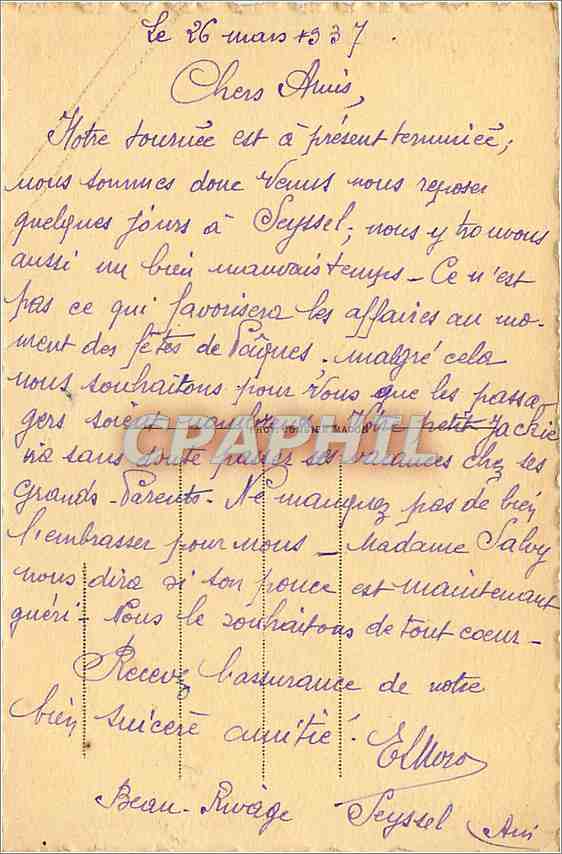 Le 26 mars 1937.
Chers Amis,
Notre tournée est à présent terminée;
nous sommes donc venus nous reposer
quelques jours à Seyssel; nous y trouvons
aussi un bien mauvais temps - Ce n'est
pas ce qui favorisera les affaires au mo-
ment des fêtes de Pâques. malgré cela
nous souhaitons pour Vous que les passa-
gers soient nombreux. Votre petit Jackie
CPARHIL
PHOT. COMBIER MACON
ira sans doute passer ses vacances chez ses
Grands-Parents. Ne manquez pas de bien
l'embrasser pour nous - Madame Salvy
nous dira si son pouce est maintenant
guéri - Nous le souhaitons de tout cœur -
Recevez l'assurance de notre
bien sincère amitié.
Beau-Rivage Seyssel Ain